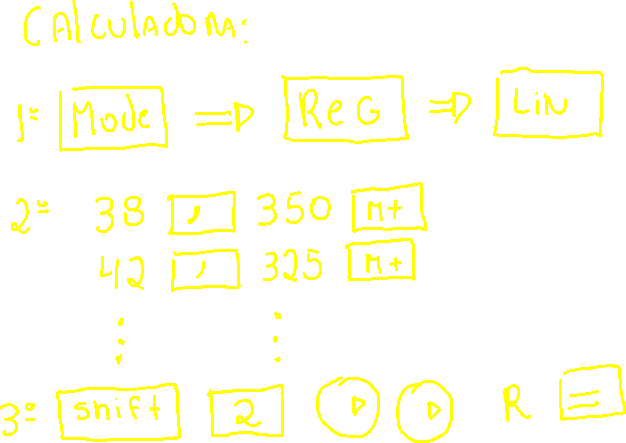 Calculadora:
1º Mode ⇒ ReG ⇒ LiN
2º 38 , 350 M+
42 , 325 M+
⋮ ⋮
3º shift 2 ▷ ▷ R =